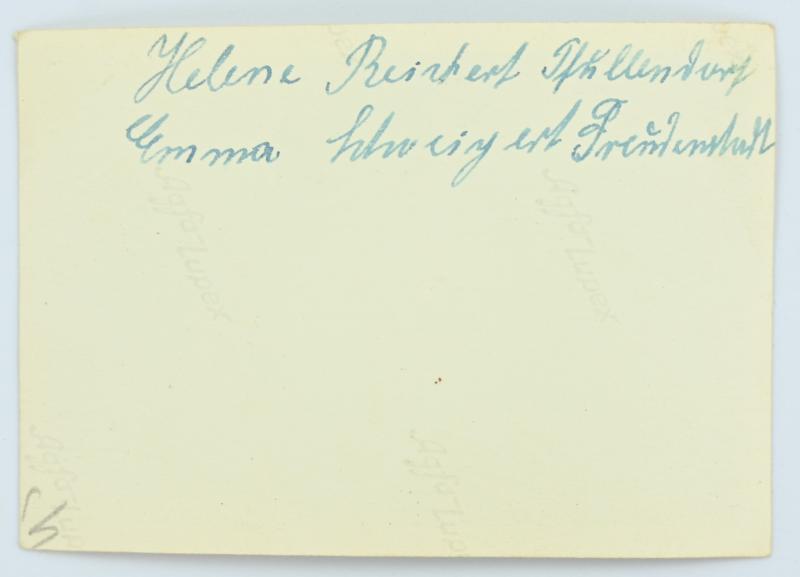 Helene Reichert Pfullendorf
Emma Schweigert Freudenstadt
Agfa-Lupex
Agfa-Lupex
Agfa-Lup
Agfa-Lupe